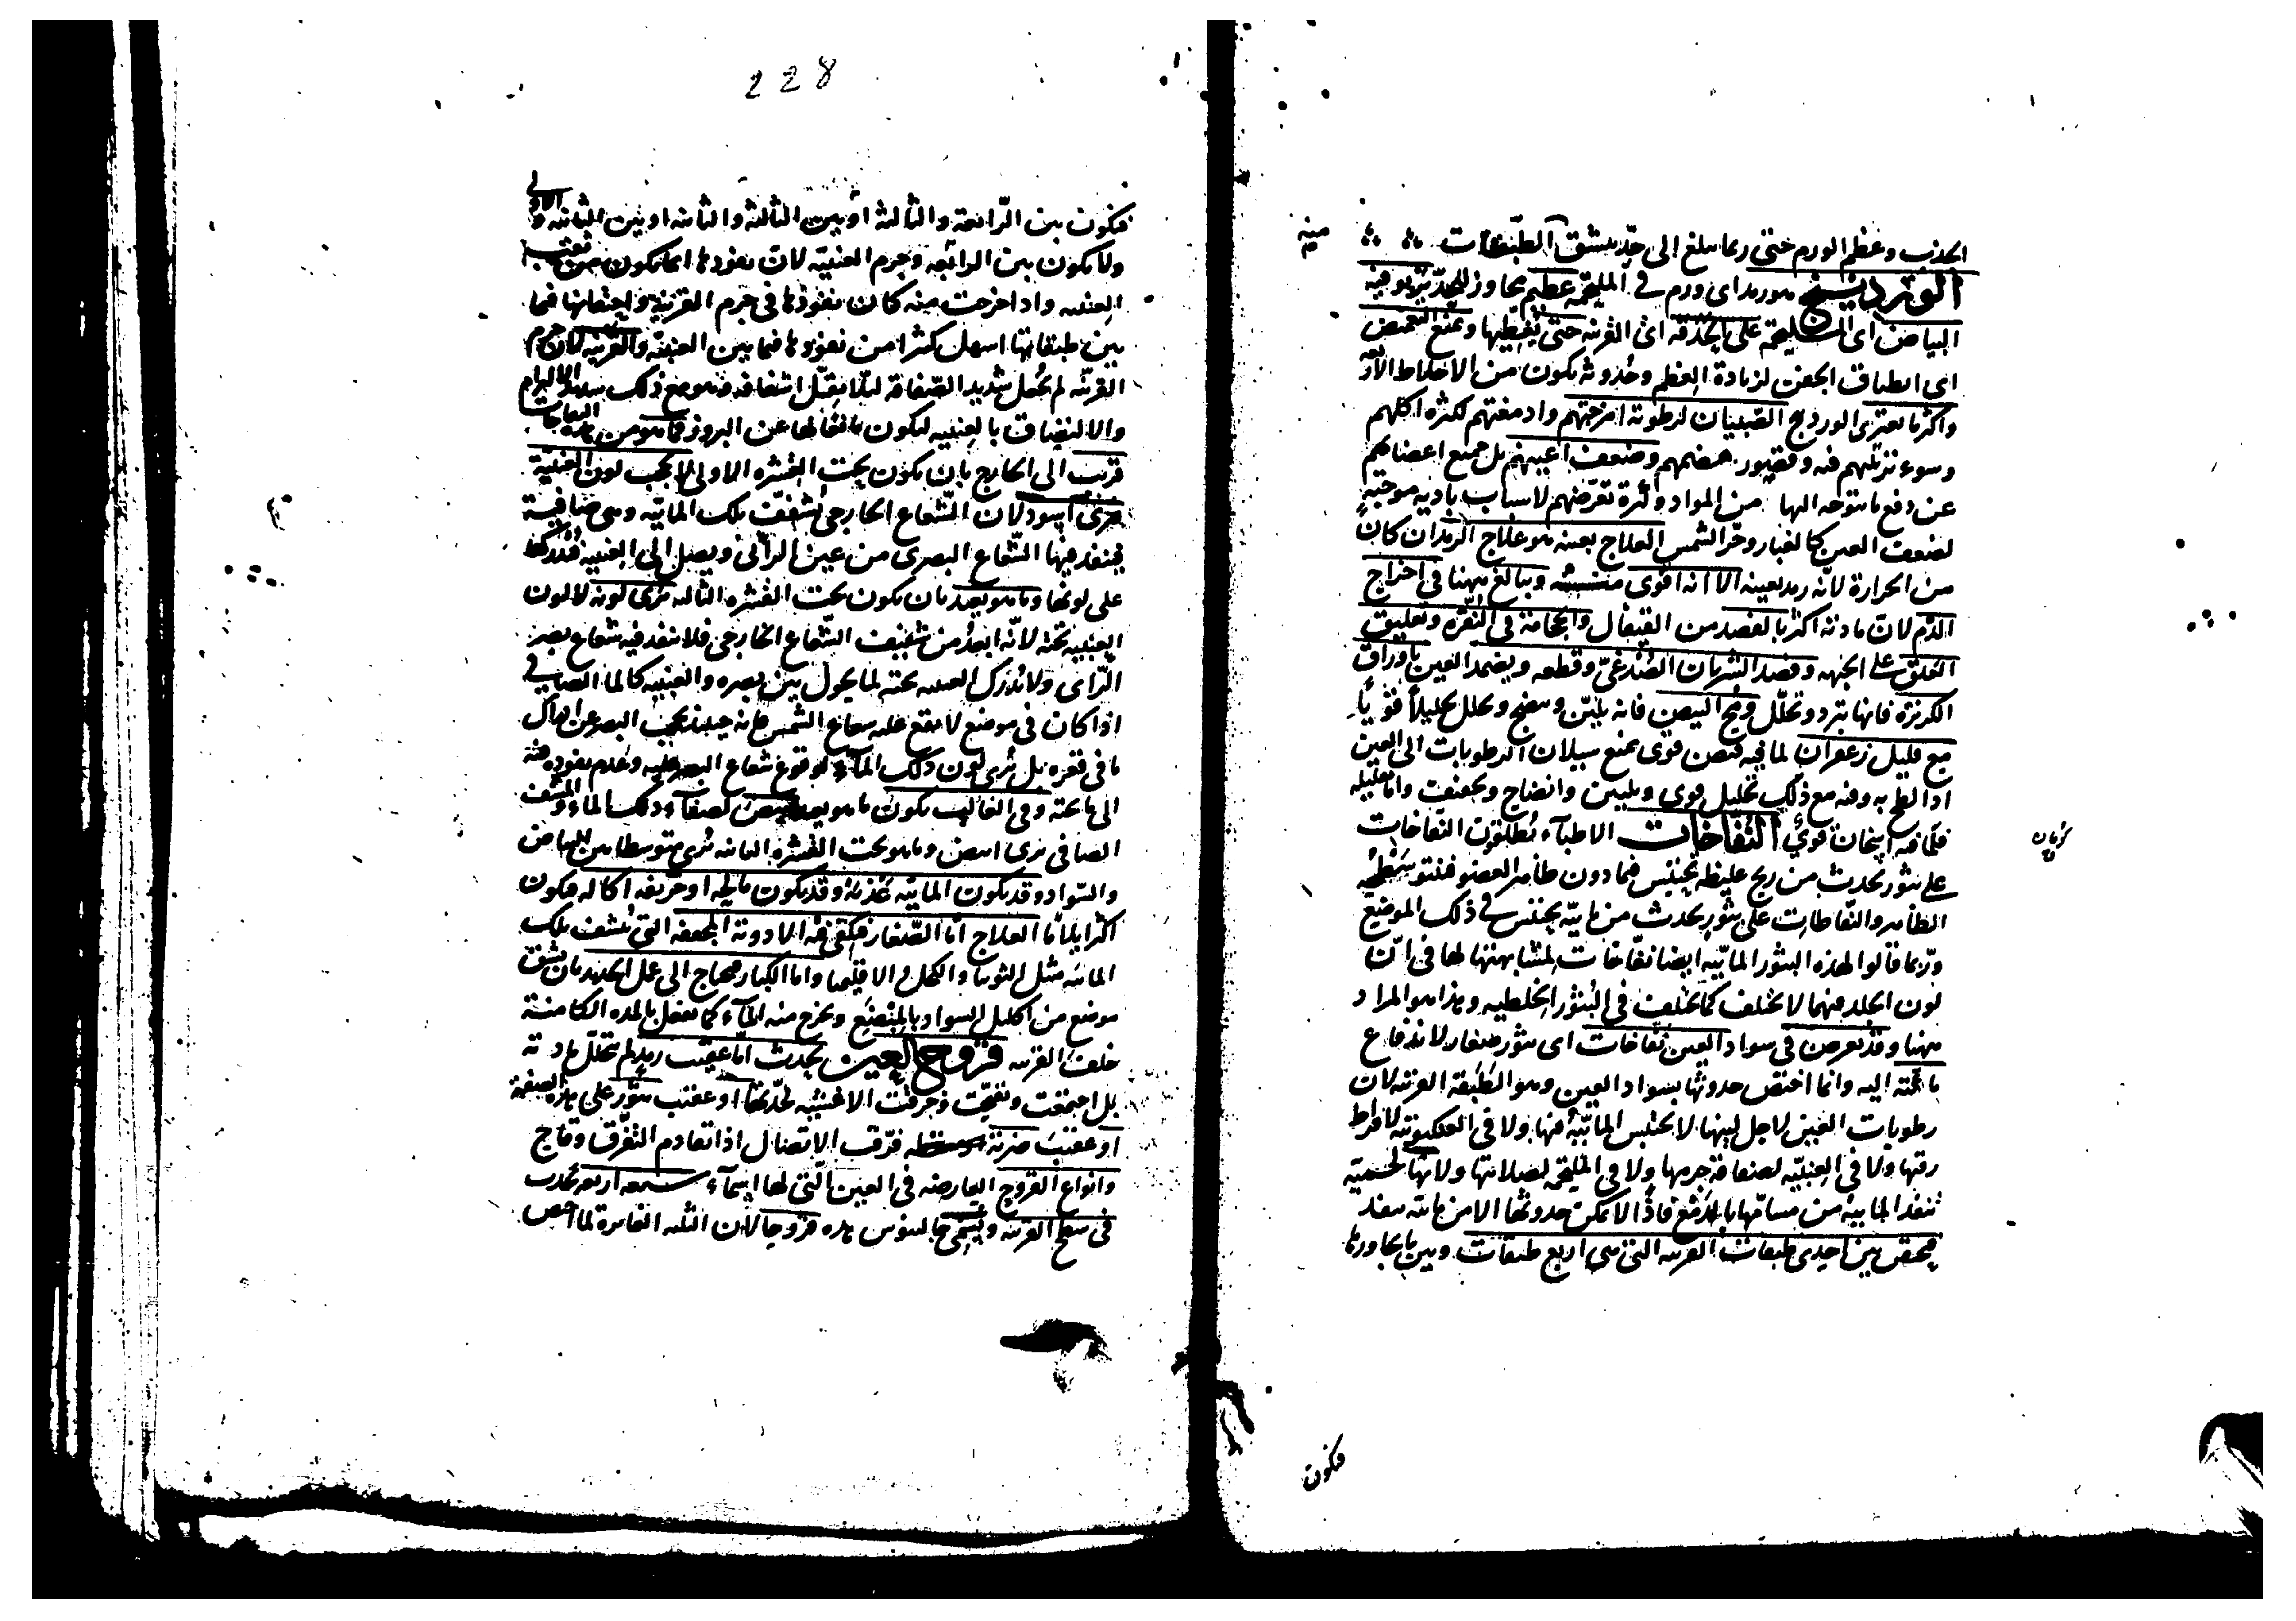 الجذب وعظم الورم حتى ربما يبلغ الى حد ينشق الطبقات
منه
الوردينج هو رمد اى ورم فى الملتحمة عظيم مجاوز للحد يربو فيه
البياض اى الملتحمة على الحدقة اى القرنية حتى يغطيها ويمنع التغميض
اى انطباق الجفن لزيادة العظم وحدوثه يكون من الاخلاط الاربعة
واكثر ما يعترى الوردينج الصبيان لرطوبة امزجتهم وادمغتهم لكثرة اكلهم
وسوء تدبيرهم فيه وقصور هضمهم وضعف اعينهم بل جميع اعضائهم
عن دفع ما يتوجه اليها من المواد وكثرة تعرضهم لاسباب بادية موجبة
لضعف العين كالغبار وحر الشمس العلاج بعينه هو علاج الرمد ان كان
من الحرارة لانه رمد بعينه الا انه اقوى منه ويبالغ ههنا فى اخراج
الدم لان مادته اكثر بالفصد من القيفال والحجامة فى النقرة وتعليق
العلق على الجبهة وفصد الشريان الصدغى وقطعه ويضمد العين باوراق
الكزبرة فانها تبرد وتحلل ومح البيض فانه يلين وينضج ويحلل تحليلا قويا
مع قليل زعفران لما فيه قبض قوى يمنع سيلان الرطوبات الى العين
اذا طلى به وفيه مع ذلك تحليل قوى وتليين وانضاج وتجفيف واما تقليله
فلما فيه اسخان قوى النفاخات الاطباء يطلقون النفاخات
على بثور تحدث من ريح غليظة تحتبس فيما دون ظاهر العضو فينتو سطحه
الظاهر والنفاطات على بثور يحدث من مائية يحتبس فى ذلك الموضع
وربما قالوا لهذه البثور المائية ايضا نفاخات لمشابهتها لها فى ان
لون الجلد فيهما لا يختلف كما يختلف فى البثور الخلطية وهذا هو المراد
ههنا وقد يعرض فى سواد العين نفاخات اى بثور صغار لاندفاع
مائية اليه وانما اختص حدوثها بسواد العين وهو الطبقة القرنية لان
رطوبات العين لاجل لينها لا يحتبس المائية فيها ولا فى العنكبوتية لافراط
رقتها ولا فى العنبية لصفاقة جرمها ولا فى الملتحمة لصلابتها ولانها لحمية
تنفذ المائية من مسامها بالدفع فاذا لا يمكن حدوثها الا من مائية تنفذ
فيحتقن بين احدى طبقات القرنية التى هى اربع طبقات وبين ما يجاورها
فيكون
228
فيكون بين الرابعة والثالثة او بين الثالثة والثانية او بين الثانية والاولى
ولا يكون بين الرابعة وجرم العنبية لان نفوذها انما يكون من ثقب
العنبية واذا خرجت منه كان نفوذها فى جرم القرنية واحتقانها فيما
بين طبقاتها اسهل كثيرا من نفوذها فيما بين العنبية والقرنية لان جرم
القرنية لم يجعل شديد الصفاقة لئلا يقل اشفافه وهو مع ذلك شديد الالتزام
والالتصاق بالعنبية ليكون مانعا لها عن البروز فما هو من هذه النفاخات
قريب الى الخارج بان يكون تحت القشرة الاولى لا يحجب لون العنبية
يرى اسود لان الشعاع الخارجى يشفف تلك المائية وهى صافية
فينفذ فيها الشعاع البصرى من عين الرائى ويصل الى العنبية فيدركها
على لونها وما هو بعيد بان يكون تحت القشرة الثالثة يرى لونه لا لون
العنبية تحته لانه ابعد من تشفيف الشعاع الخارجى فلا ينفذ فيه شعاع بصر
الرائى ولا يدرك العنبية تحته لما يحول بين بصره والعنبية كالماء الصافى
اذا كان فى موضع لا يقع عليه شعاع الشمس فانه حينئذ يحجب البصر عن ادراك
ما فى قعره بل يرى لون ذلك الماء لوقوع شعاع البصر عليه وعدم نفوذه فيه
الى ما تحته وفى الغالب يكون ما هو بعيد ابيض لصفاء ذلك الماء والمشف
الصافى يرى ابيض وما هو تحت القشرة الثانية يرى متوسطا بين البياض
والسواد وقد يكون المائية عذبة وقد يكون مالحة او حريفة اكالة فيكون
اكثر ايلاما العلاج اما الصغار فيكفى فيه الادوية المجففة التى تنشف تلك
المائية مثل التوتيا والكحل والاقليميا واما الكبار فيحتاج الى عمل الحديد بان يشق
موضع من اكليل السواد بالمبضع ويخرج منه الماء كما يفعل بالمدة الكامنة
خلف القرنية قروح العين يحدث اما عقيب رمد لم يتحلل مادته
بل اجتمعت وتقيحت وخرقت الاغشية لحدتها او عقيب بثور على هذه الصفة
او عقيب ضربة فرق الاتصال اذا تقادم التفرق وقاح
وانواع القروح العارضة فى العين التى لها اسماء سبعة اربعة تحدث
فى سطح القرنية ويسمى جالينوس هذه قروحا لان الثلثة الغايرة لما اختص